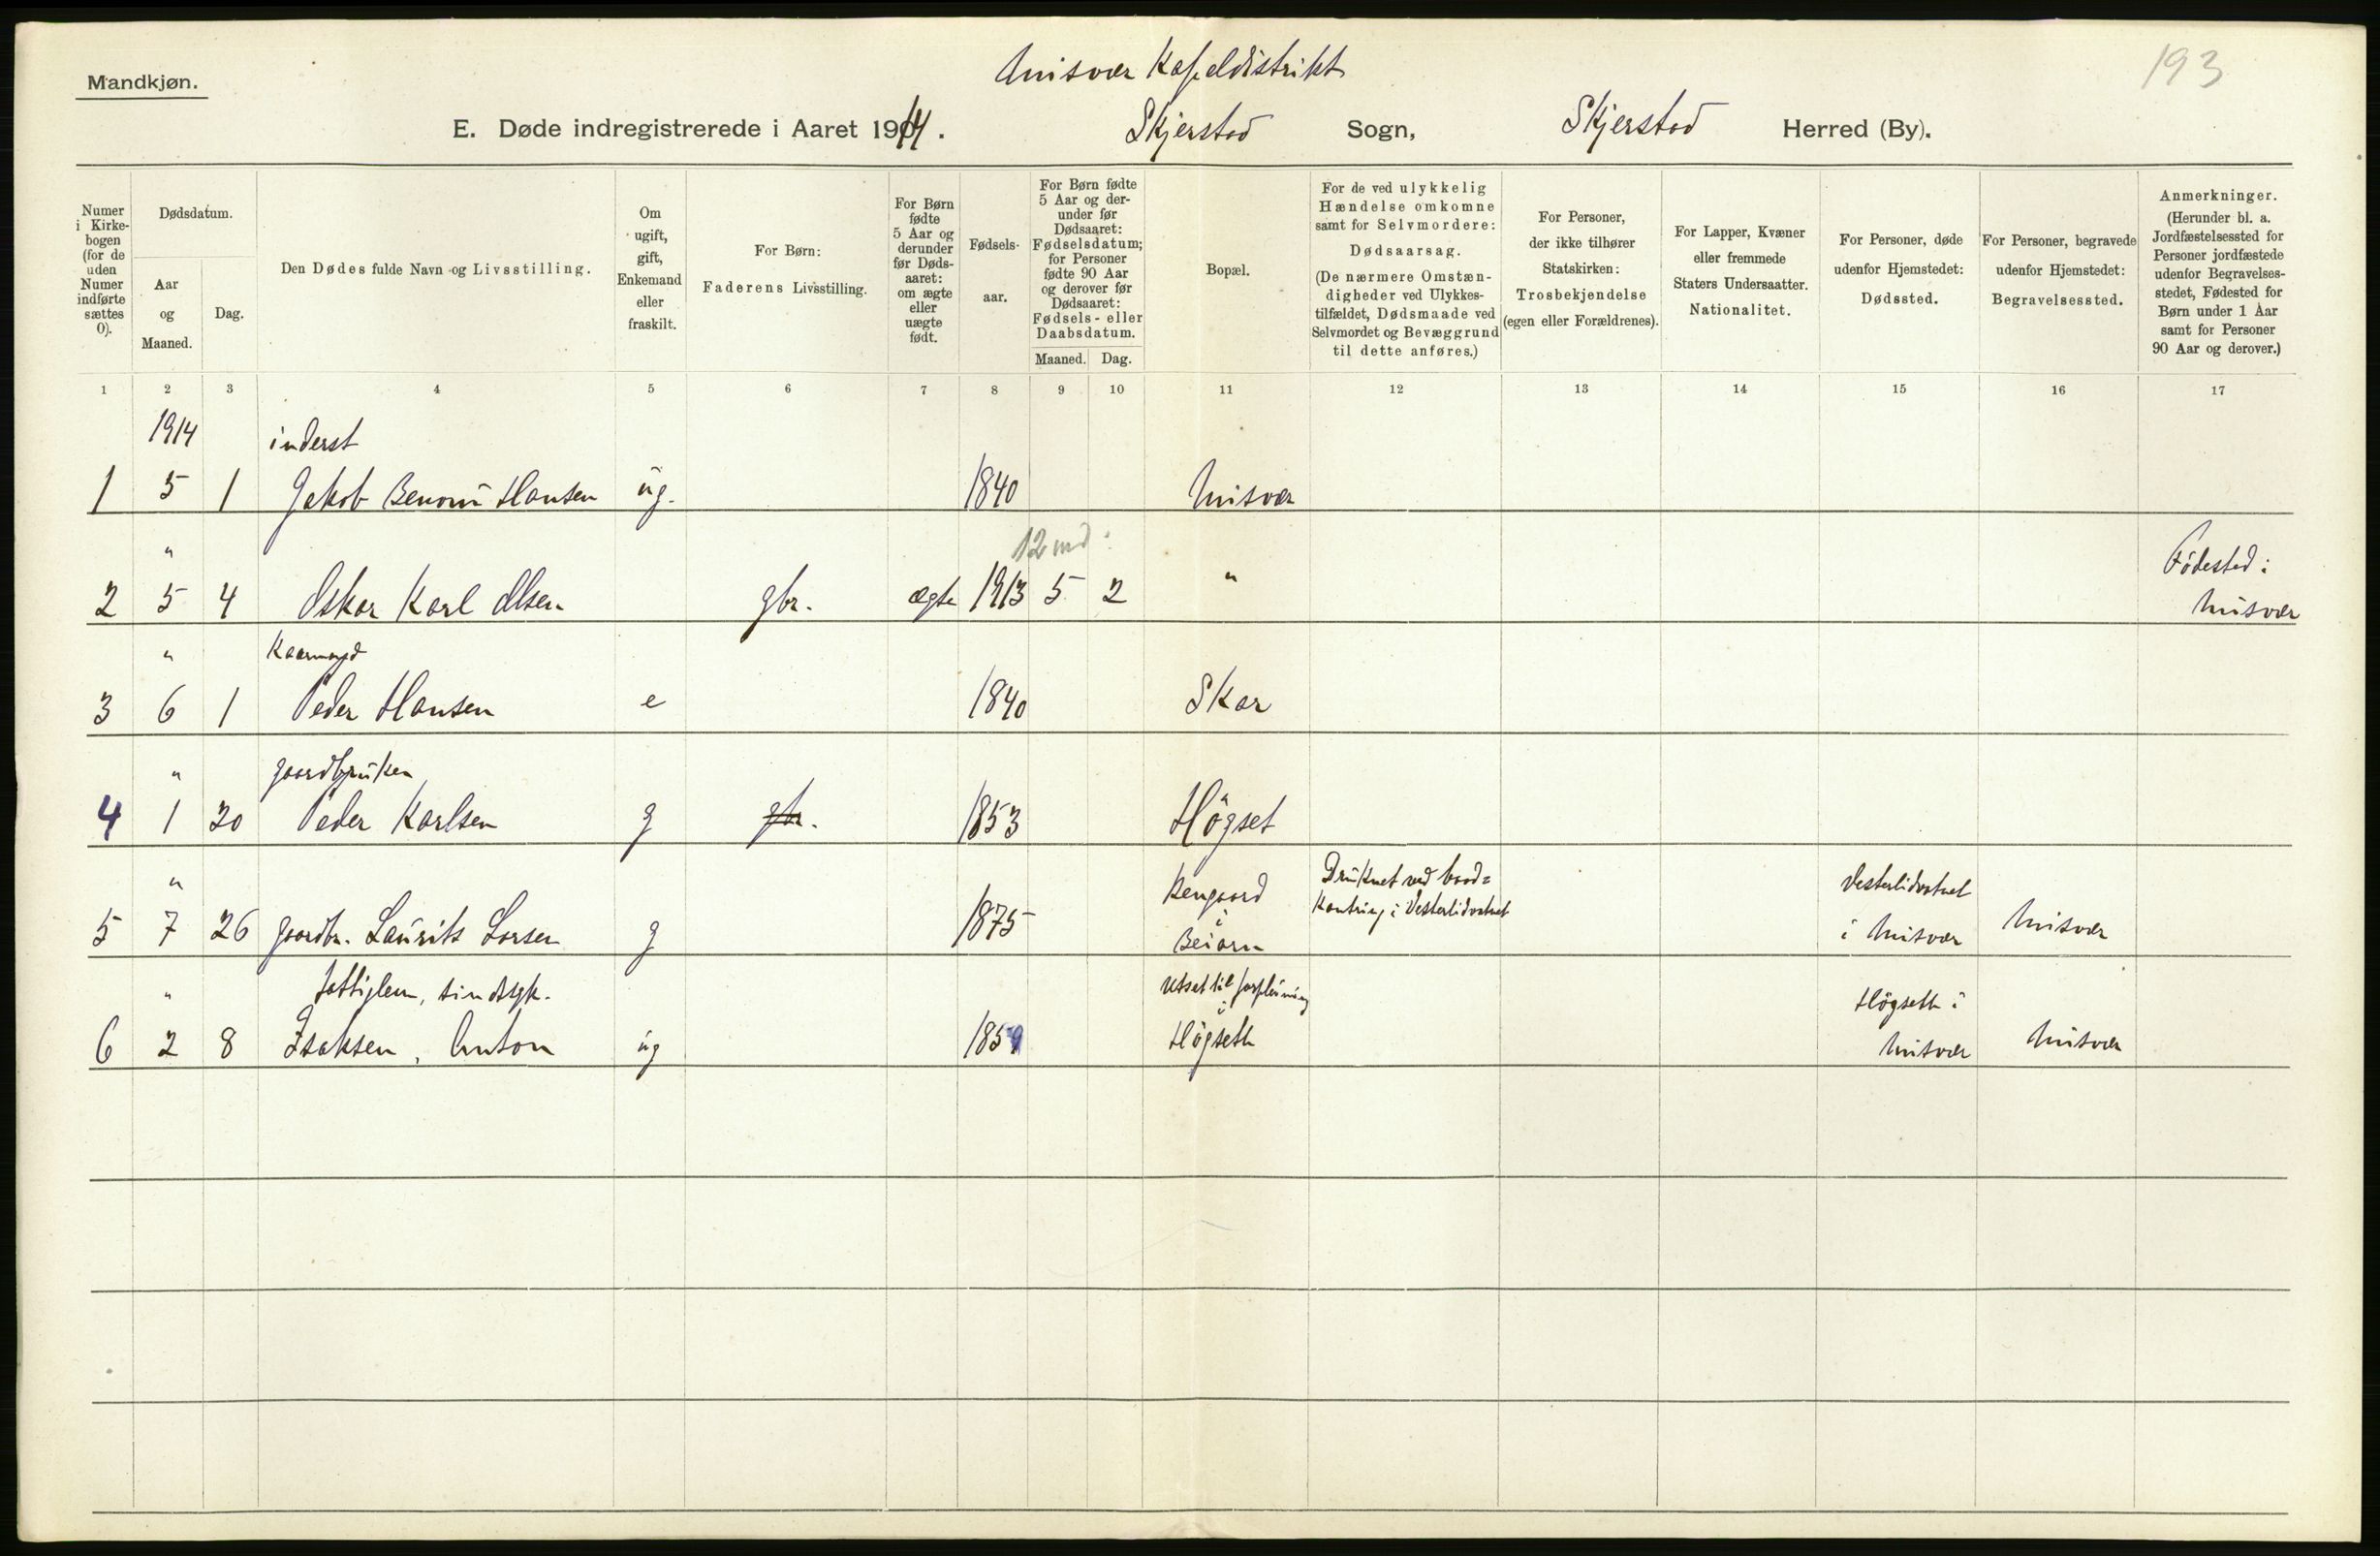 Mandkjøn.
Misvær Kapeldistrikt
193
E. Døde indregistrerede i Aaret 1914. Skjerstad Sogn, Skjerstad Herred (By).
Numer i Kirkebogen (for de uden Numer indførte sættes 0).
Dødsdatum.
Aar og Maaned.
Dag.
Den Dødes fulde Navn og Livsstilling.
Om ugift, gift, Enkemand eller fraskilt.
For Børn: Faderens Livsstilling.
For Børn fødte 5 Aar og derunder før Dødsaaret: om ægte eller uægte født.
Fødselsaar.
For Børn fødte 5 Aar og derunder før Dødsaaret: Fødselsdatum; for Personer fødte 90 Aar og derover før Dødsaaret: Fødsels- eller Daabsdatum.
Maaned. Dag.
Bopæl.
For de ved ulykkelig Hændelse omkomne samt for Selvmordere: Dødsaarsag. (De nærmere Omstændigheder ved Ulykkestilfældet, Dødsmaade ved Selvmordet og Bevæggrund til dette anføres.)
For Personer, der ikke tilhører Statskirken: Trosbekjendelse (egen eller Forældrenes).
For Lapper, Kvæner eller fremmede Staters Undersaatter. Nationalitet.
For Personer, døde udenfor Hjemstedet: Dødssted.
For Personer, begravede udenfor Hjemstedet: Begravelsessted.
Anmerkninger. (Herunder bl. a. Jordfæstelsessted for Personer jordfæstede udenfor Begravelsesstedet, Fødested for Børn under 1 Aar samt for Personer 90 Aar og derover.)
1 2 3 4 5 6 7 8 9 10 11 12 13 14 15 16 17
1914 inderst
1 5 1 Jakob Benoni Hansen ug. 1840 Misvær
" 12 md. Födested:
2 5 4 Oskar Karl Olsen gbr. ægte 1913 5 2 " Misvær
" Kaarmand
3 6 1 Peder Hansen e 1840 Skar
" gaardbruker
4 1 20 Peder Karlsen g gbr. 1853 Högset
" Kengaard Druknet ved baad= Vesterlivatnet
i Kantring i Vesterlivatnet
5 7 26 gaardbr. Laurits Larsen g 1875 Beiarn i Misvær Misvær
" fattiglem, sindsyk. Utsat til forpleining Högseth i
i
6 2 8 Isaksen, Anton ug 1859 Högseth Misvær Misvær